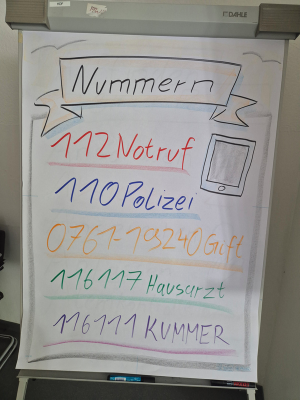 DAHLE
Nummern
112 Notruf
110 Polizei
0761-19240 Gift
116117 Hausarzt
116111 KUMMER